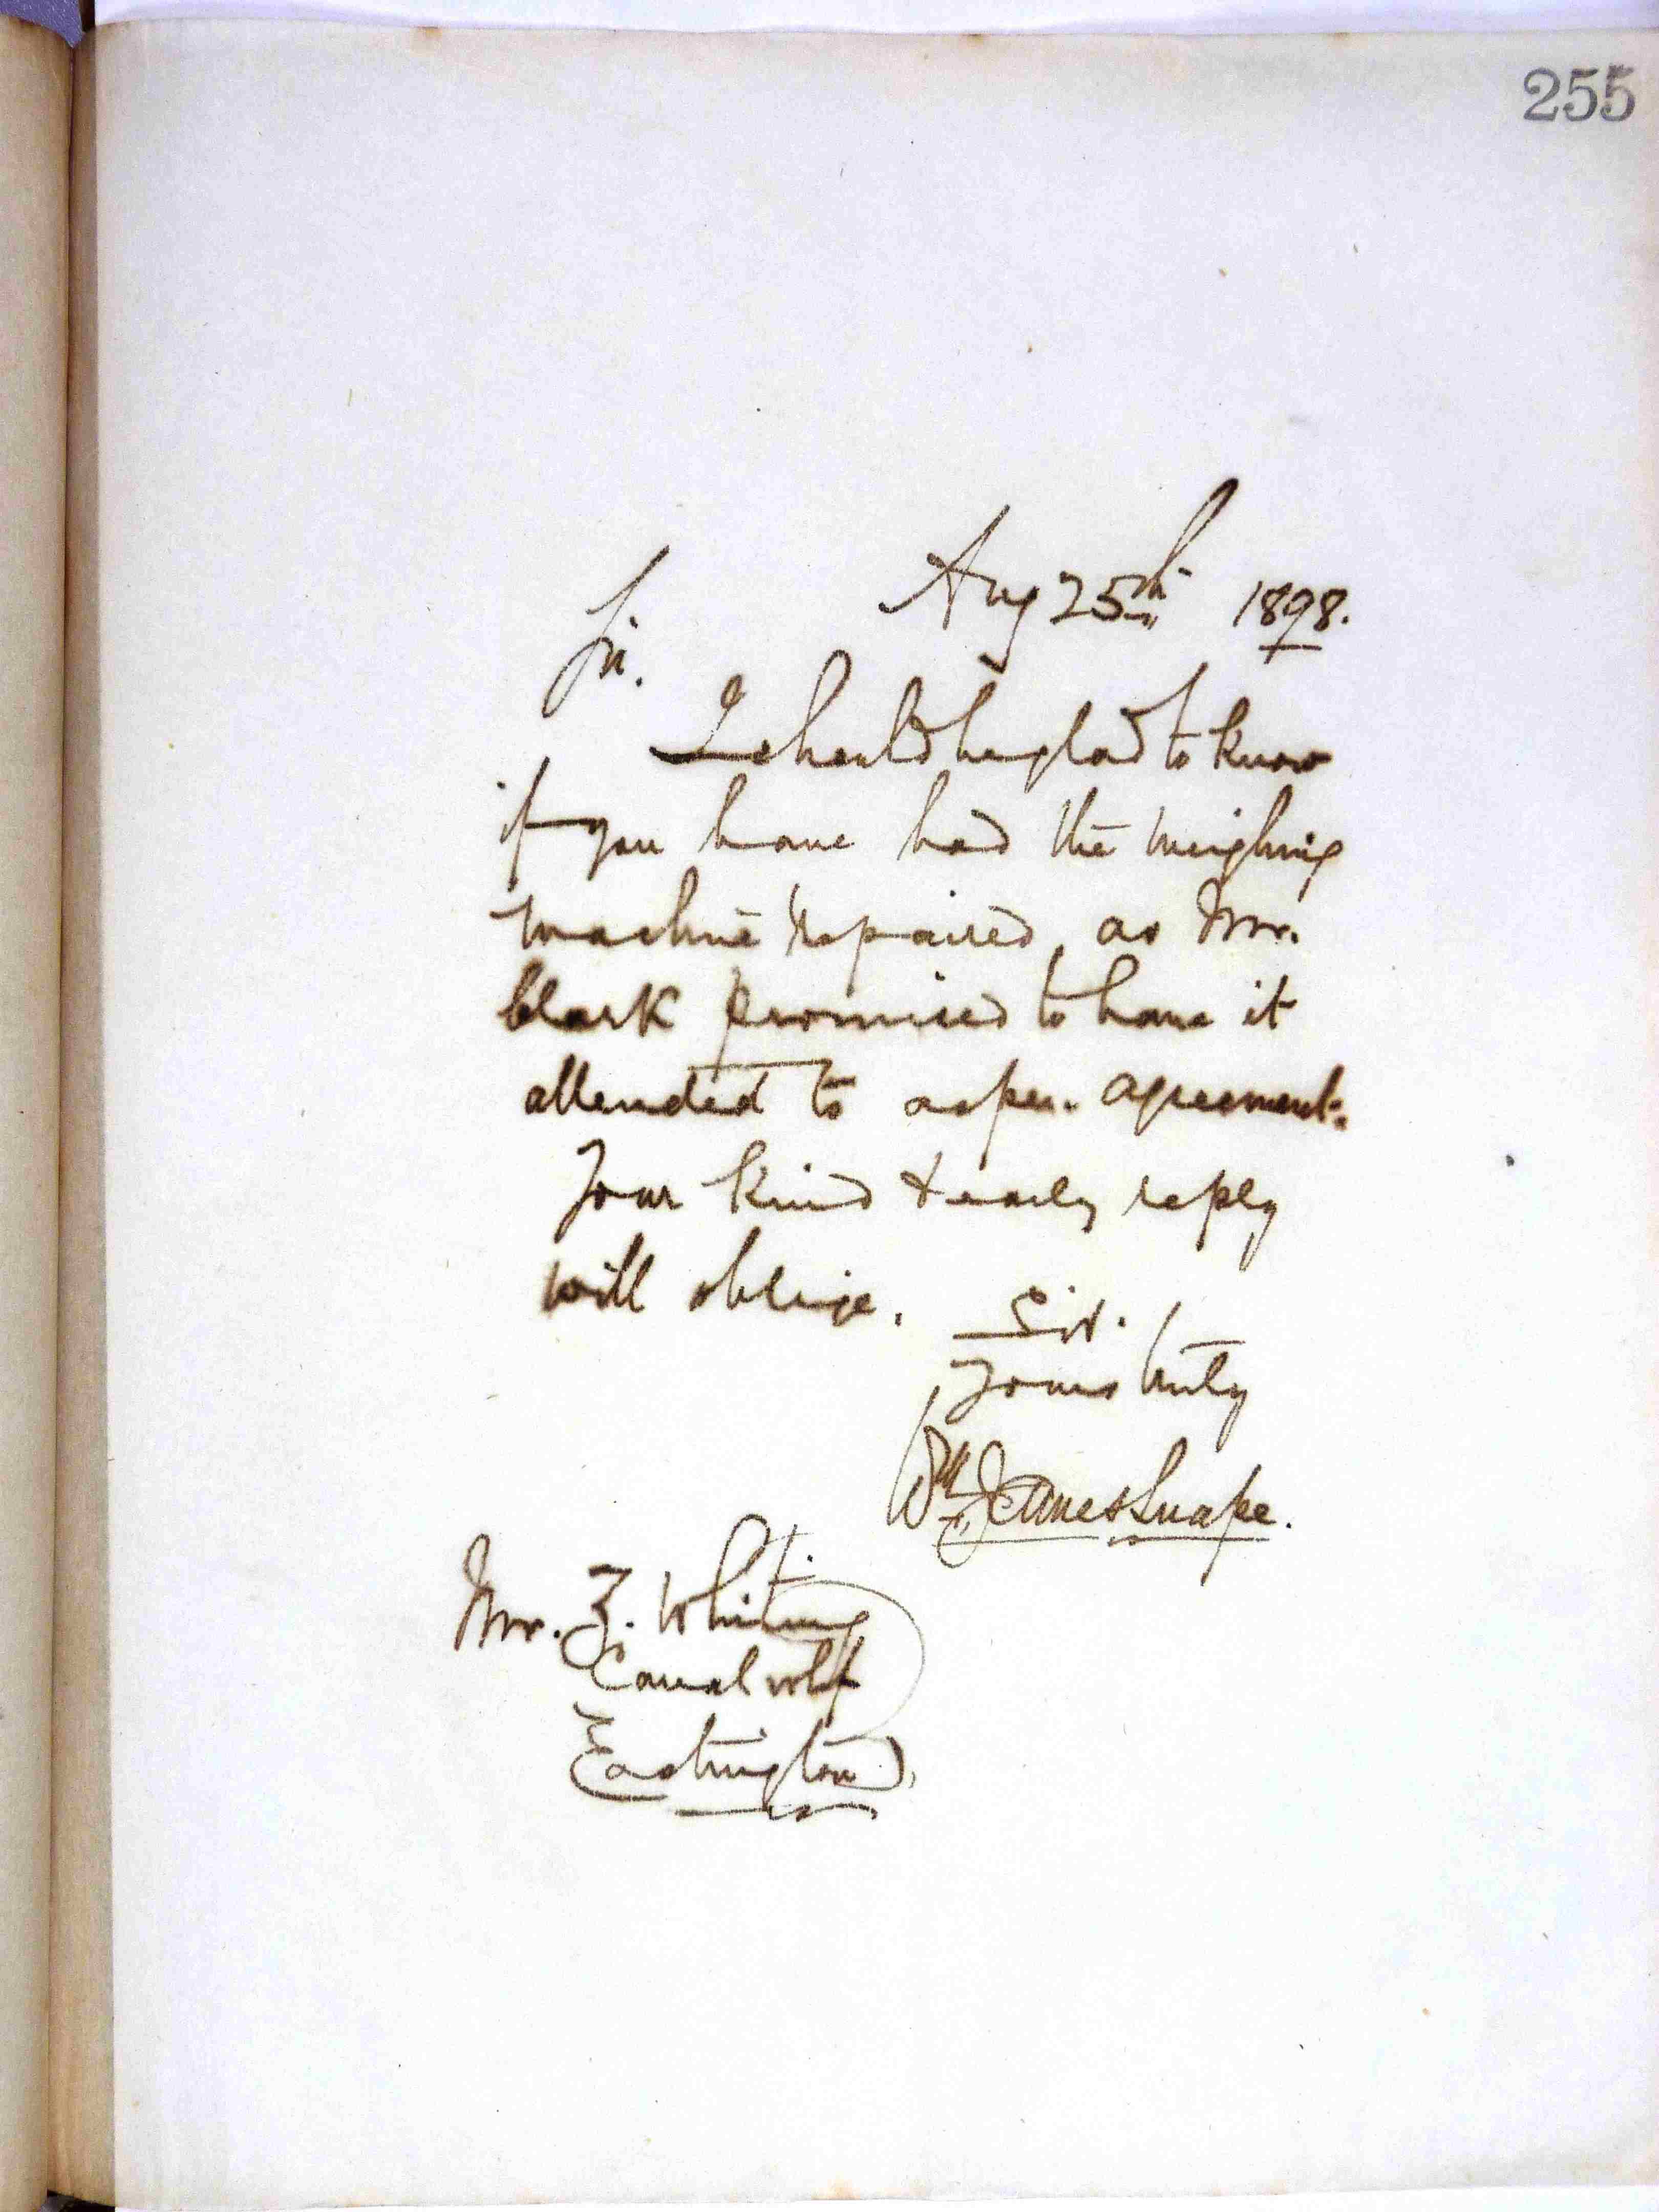 255
Aug 25th 1898.
Sir.
I should be glad to know
if you have had the weighing
machine repaired, as Mr.
Clark promised to have it
attended to as per. agreement.
Your kind & early reply
will oblige.
Sir.
Yours truly
Wm James Snape.
Mr. Z. Whiting
Canal Whf
Eastington